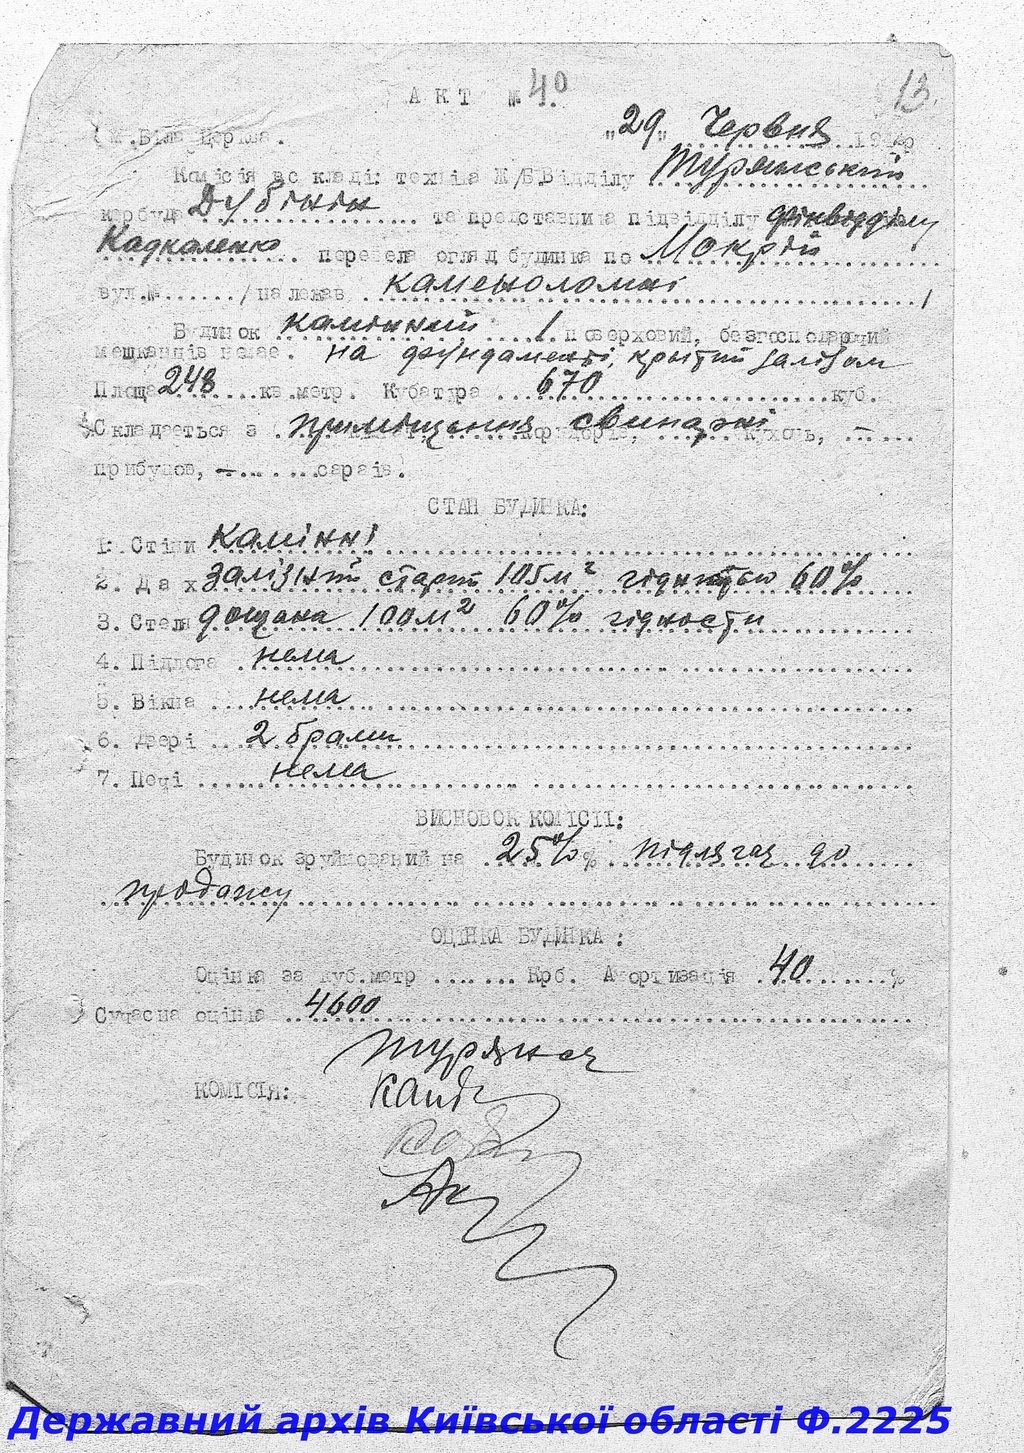 13.
АКТ № 40
м. Біла Церква. "29" Червня 194 р
Комісія в складі: техніка Ж/Б Відділу Турянський
керуда Дубінін та представника підвідділу фінвідділу
Кадкаленко перевела огляд будинка по Мокрій
вул.№ ....... /належав каменоломні /
Будинок камінний 1 поверховий, безгосподарний
мешканців немає. на фундаменті, критий залізом
Площа 248 кв.метр. Кубатура 670 куб.
Складається з приміщення свинарні корідорів, кухонь, —
прибудов, — сараїв.
СТАН БУДИНКА:
1. Стіни камінні
2. Дах залізний старий 105м² гідністю 60%
3. Стеля дощана 100м² 60% гідности
4. Підлога нема
5. Вікна нема
6. Двері 2 брами
7. Печі нема
ВИСНОВОК КОМІСІІ:
Будинок зруйнований на 25% % підлягає до
продажу
ОЦІНКА БУДИНКА :
Оцінка за куб.метр ....... Крб. Амортизація 40 %
Сучасна оцінка 4600
КОМІСІЯ:
Державний архів Київської області Ф.2225